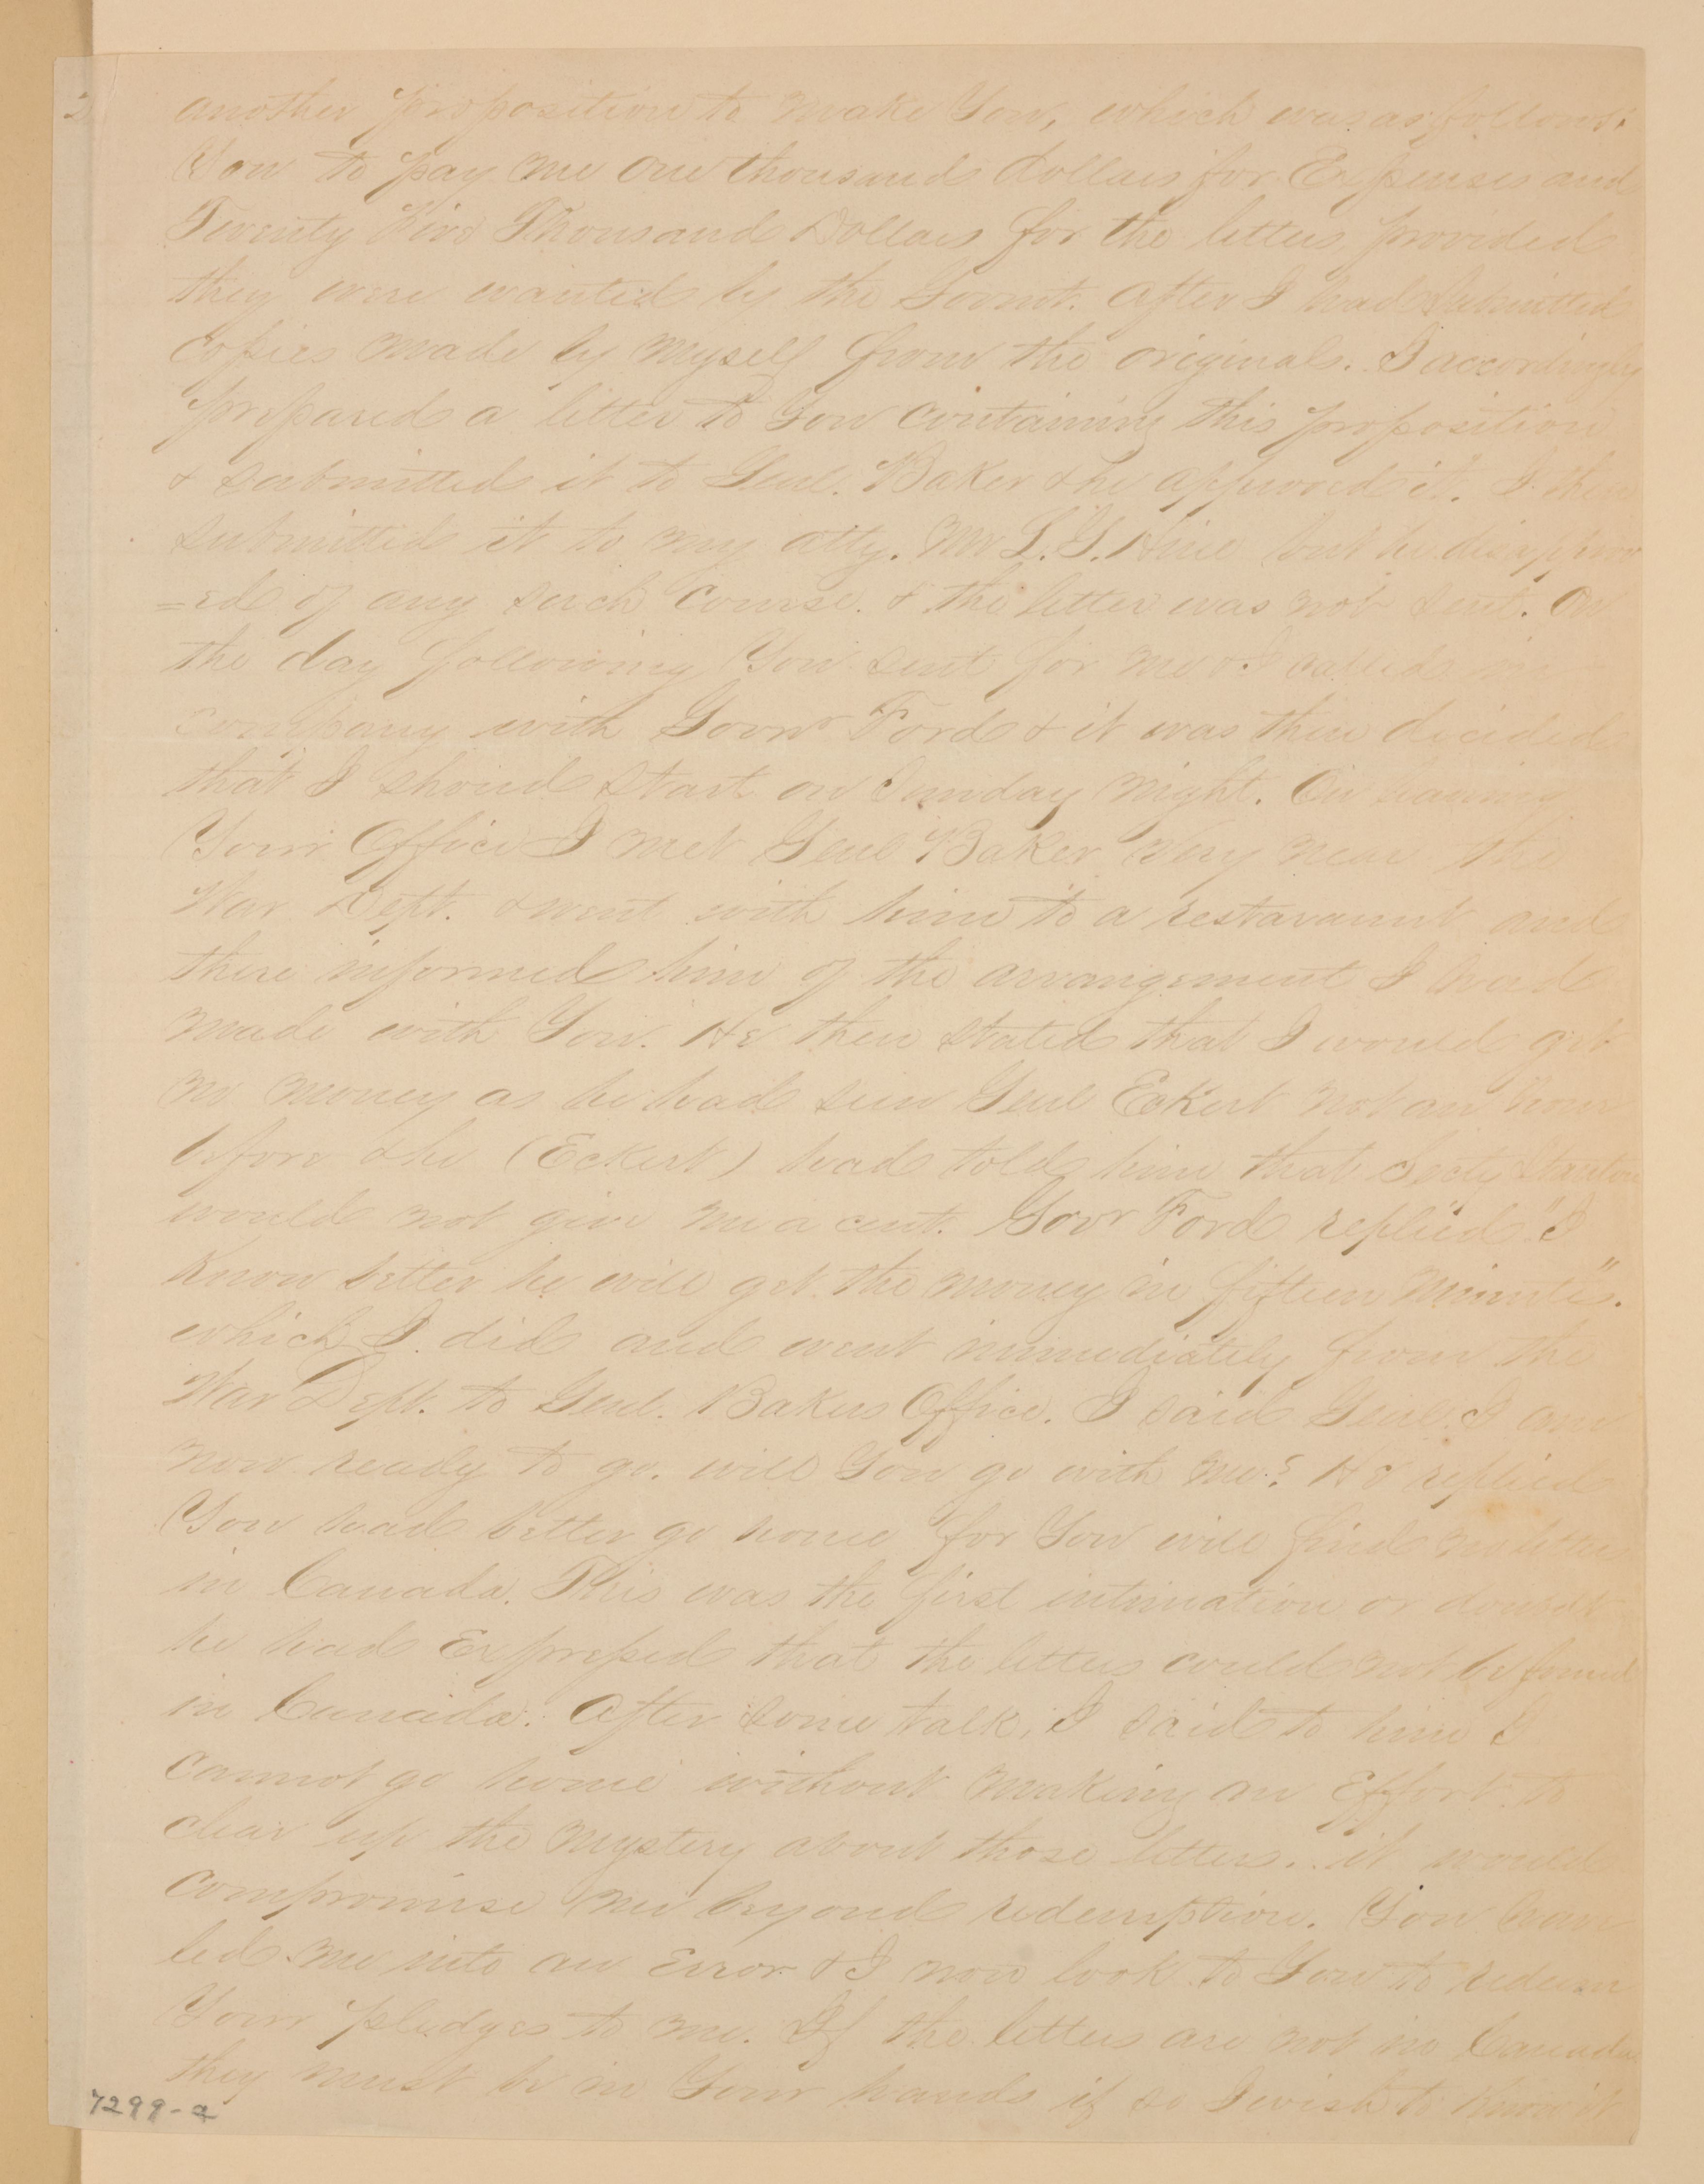 2
another proposition to make You, which was as follows:
You to pay me One thousand dollars for Expenses and
Twenty Five Thousand Dollars for the letters provided
they were wanted by the Govmt. after I had submitted
copies made by myself from the originals. I accordingly
prepared a letter to You containing this proposition
& submitted it to Genl. Baker & he approved it. I then
submitted it to my atty. Mr L. G. Hine but he disapprov
=ed of any such course. & the letter was not sent. On
the day following You sent for me & I called in
company with Govnr Ford & it was then decided
that I should start on Sunday night. On leaving
Your Office I met Genl Baker very near the
War Dept. & went with him to a restaraunt and
there informed him of the arrangement I had
made with You. He then stated that I would get
no money as he had seen Genl Eckert not an hour
before & he (Eckert) had told him that Secty Stanton
would not give me a cent. Govr Ford replied "I
know better he will get the money in fifteen Minutes".
which I did and went immediately from the
War Dept. to Genl. Bakers Office. I said Genl. I am
now ready to go. will You go with me? He replied
You had better go home for You will find no letters
in Canada. This was the first intimation or doubt
he had Expressed that the letters could not be found
in Canada. After some talk, I said to him I
cannot go home without making an Effort to
clear up the mystery about those letters. it would
compromise me beyond redemption. You have
led me into an Error & I now look to You to redeem
Your pledges to me. If the letters are not in Canada
they must be in Your hands if so I wish to know it
7299-a